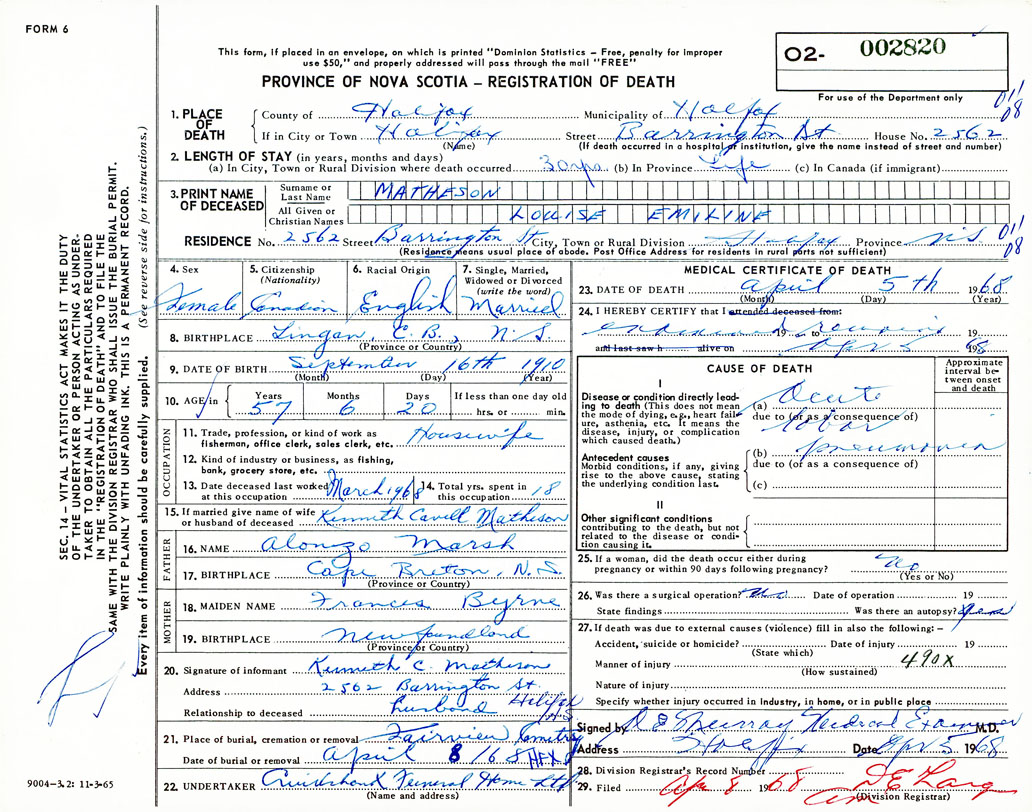 FORM 6
This form, if placed in an envelope, on which is printed "Dominion Statistics – Free, penalty for improper
use $50," and properly addressed will pass through the mail "FREE"
PROVINCE OF NOVA SCOTIA – REGISTRATION OF DEATH
O2- 002820
For use of the Department only
011
08
1. PLACE OF DEATH
County of Halifax Municipality of Halifax
If in City or Town Halifax Street Barrington St House No. 2562
(Name) (If death occurred in a hospital or institution, give the name instead of street and number)
2. LENGTH OF STAY (in years, months and days)
(a) In City, Town or Rural Division where death occurred 30 yrs (b) In Province Life (c) In Canada (if immigrant)
3. PRINT NAME OF DECEASED
Surname or Last Name MATHESON
All Given or Christian Names LOUISE EMILINE
RESIDENCE No. 2562 Street Barrington St City, Town or Rural Division Halifax Province N.S. 011
08
(Residence means usual place of abode. Post Office Address for residents in rural ports not sufficient)
4. Sex Female
5. Citizenship (Nationality) Canadian
6. Racial Origin English
7. Single, Married, Widowed or Divorced (write the word) Married
8. BIRTHPLACE Lingan, C.B., N.S.
(Province or Country)
9. DATE OF BIRTH September 16th 1910
(Month) (Day) (Year)
10. AGE in Years 57 Months 6 Days 20 If less than one day old hrs. or min.
OCCUPATION
11. Trade, profession, or kind of work as fisherman, office clerk, sales clerk, etc. Housewife
12. Kind of industry or business, as fishing, bank, grocery store, etc.
13. Date deceased last worked at this occupation March 1968
14. Total yrs. spent in this occupation 18
15. If married give name of wife or husband of deceased Kenneth Cavell Matheson
FATHER
16. NAME Alonzo Marsh
17. BIRTHPLACE Cape Breton, N.S.
(Province or Country)
MOTHER
18. MAIDEN NAME Frances Byrne
19. BIRTHPLACE Newfoundland
(Province or Country)
20. Signature of informant Kenneth C. Matheson
Address 2562 Barrington St. Halifax N.S.
Relationship to deceased husband
21. Place of burial, cremation or removal Fairview Cemetry
Date of burial or removal April 8 1968 HFX
22. UNDERTAKER Cruikshank Funeral Home Ltd.
(Name and address)
MEDICAL CERTIFICATE OF DEATH
23. DATE OF DEATH April 5th 1968
(Month) (Day) (Year)
24. I HEREBY CERTIFY that I attended deceased from:
19 to 19
and last saw h alive on Apr 5 1968
CAUSE OF DEATH
Approximate interval between onset and death
I
Disease or condition directly leading to death (This does not mean the mode of dying, e.g., heart failure, asthenia, etc. It means the disease, injury, or complication which caused death.)
(a) Acute
due to (or as a consequence of)
lobar
Antecedent causes
Morbid conditions, if any, giving rise to the above cause, stating the underlying condition last.
(b) pneumonia
due to (or as a consequence of)
(c)
II
Other significant conditions contributing to the death, but not related to the disease or condition causing it.
25. If a woman, did the death occur either during pregnancy or within 90 days following pregnancy? no
(Yes or No)
26. Was there a surgical operation? Date of operation 19
State findings Was there an autopsy?
27. If death was due to external causes (violence) fill in also the following: –
Accident, suicide or homicide? Date of injury 19
(State which)
Manner of injury 490X
(How sustained)
Nature of injury
Specify whether injury occurred in Industry, in home, or in public place
Signed by Murray Medical Examiner M.D.
Address Date Apr 5 1968
28. Division Registrar's Record Number
29. Filed Apr 8 1968
(Division Registrar)
SEC. 14 – VITAL STATISTICS ACT MAKES IT THE DUTY
OF THE UNDERTAKER OR PERSON ACTING AS UNDER-
TAKER TO OBTAIN ALL THE PARTICULARS REQUIRED
IN THE "REGISTRATION OF DEATH" AND TO FILE THE
SAME WITH THE DIVISION REGISTRAR WHO SHALL ISSUE THE BURIAL PERMIT.
WRITE PLAINLY WITH UNFADING INK. THIS IS A PERMANENT RECORD.
Every item of information should be carefully supplied. (See reverse side for instructions.)
9004-3.2: 11-3-65